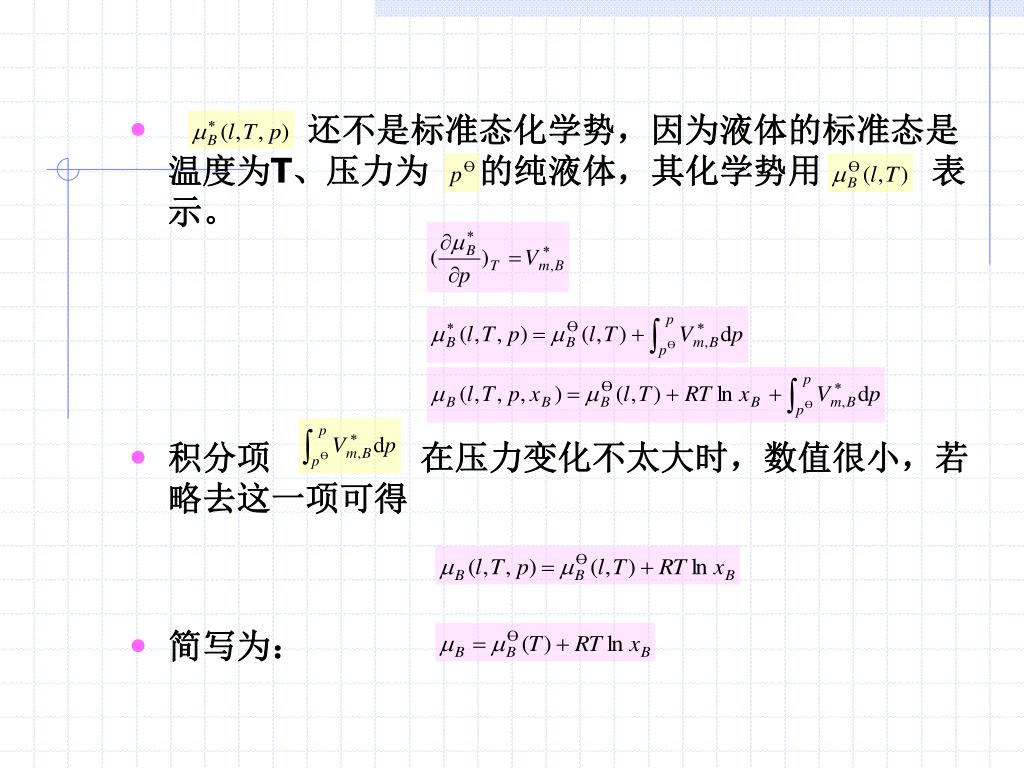 • μ*B (l,T, p) 还不是标准态化学势，因为液体的标准态是
温度为T、压力为 p^Θ 的纯液体，其化学势用 μ^Θ_B (l,T) 表
示。
(∂μ*_B/∂p)_T = V*_{m,B}
μ*_B (l,T, p) = μ^Θ_B (l,T) + ∫_{p^Θ}^{p} V*_{m,B} dp
μ_B (l,T, p, x_B) = μ^Θ_B (l,T) + RT ln x_B + ∫_{p^Θ}^{p} V*_{m,B} dp
• 积分项 ∫_{p^Θ}^{p} V*_{m,B} dp 在压力变化不太大时，数值很小，若
略去这一项可得
μ_B (l,T, p) = μ^Θ_B (l,T) + RT ln x_B
• 简写为： μ_B = μ^Θ_B (T) + RT ln x_B